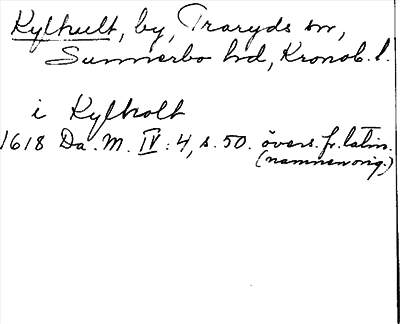 Kylhult, by, Traryds sn,
Sunnerbo hd, Kronob. l.
i Kylholt
1618 Da. M. IV : 4, s. 50. övers. fr. latin.
(namnen orig.)